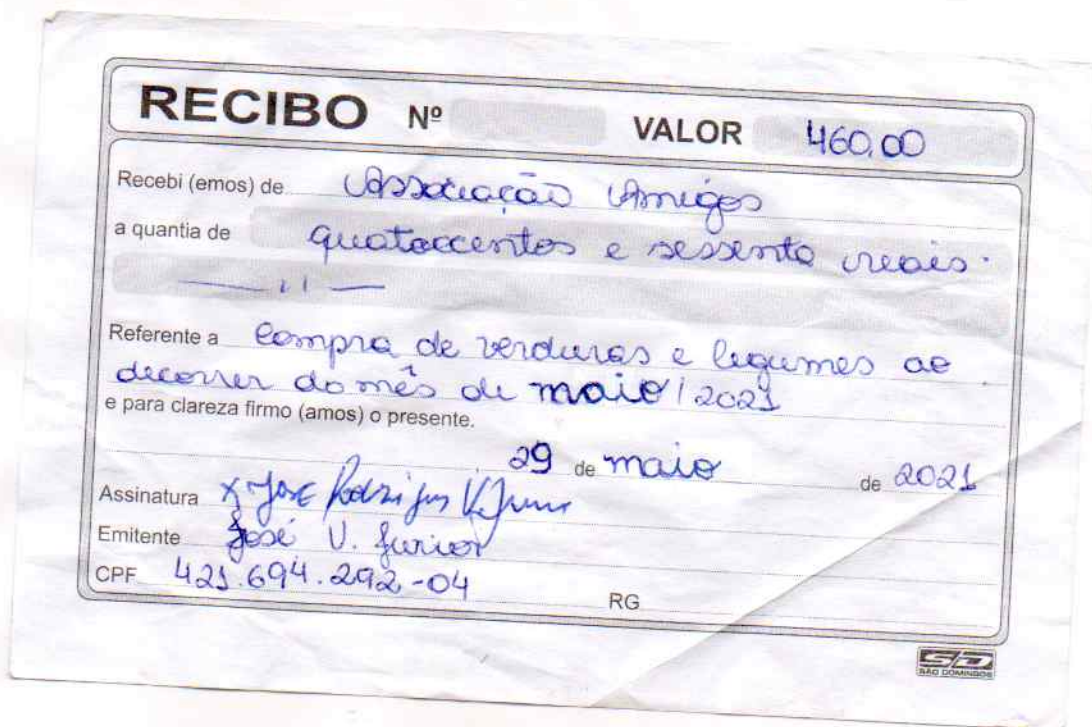 RECIBO Nº VALOR 460,00
Recebi (emos) de Associação Amigos
a quantia de quatrocentos e sessenta reais.
— 11 —
Referente a Compra de verduras e legumes ao
decorrer do mês de maio/2021
e para clareza firmo (amos) o presente.
29 de maio de 2021
Assinatura x José Rodrigues V. Junior
Emitente José V. Junior
CPF 421.694.292-04 RG
SD
SÃO DOMINGOS